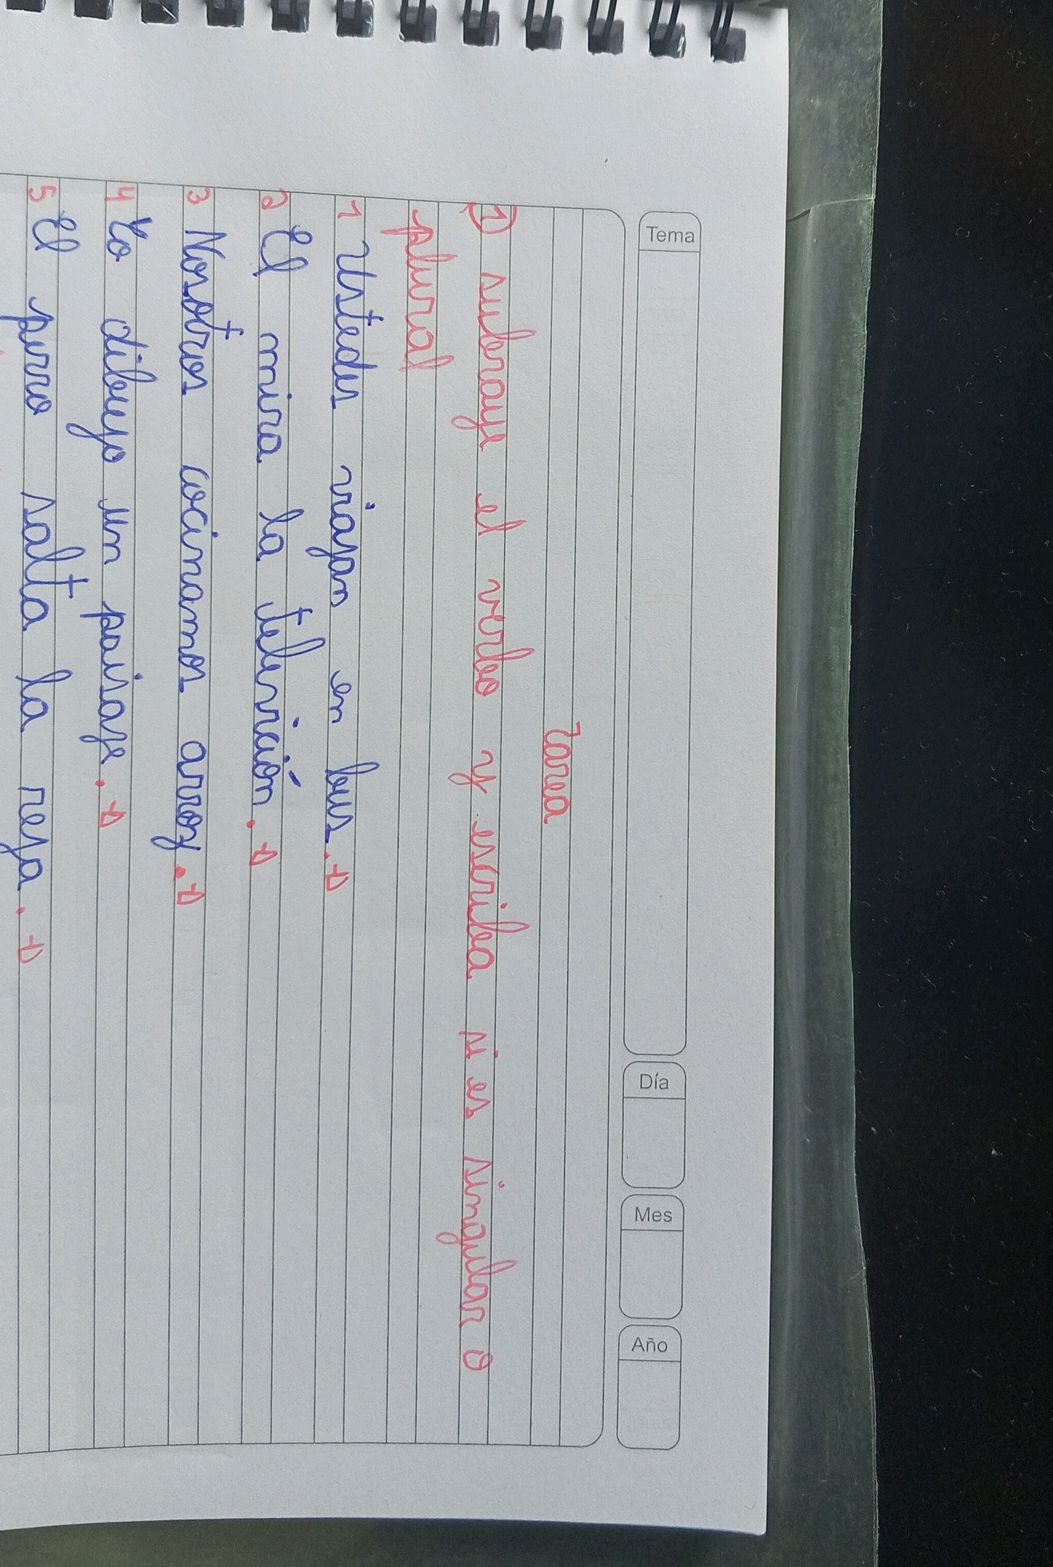 Tema
Día
Mes
Año
Tarea
1) subraye el verbo y escriba si es singular o
plural
1 Ustedes viajan en bus. →
2 El mira la televisión. →
3 Nosotros cocinamos arroz. →
4 Yo dibujo un paisaje. →
5 El perro salta la reja. →